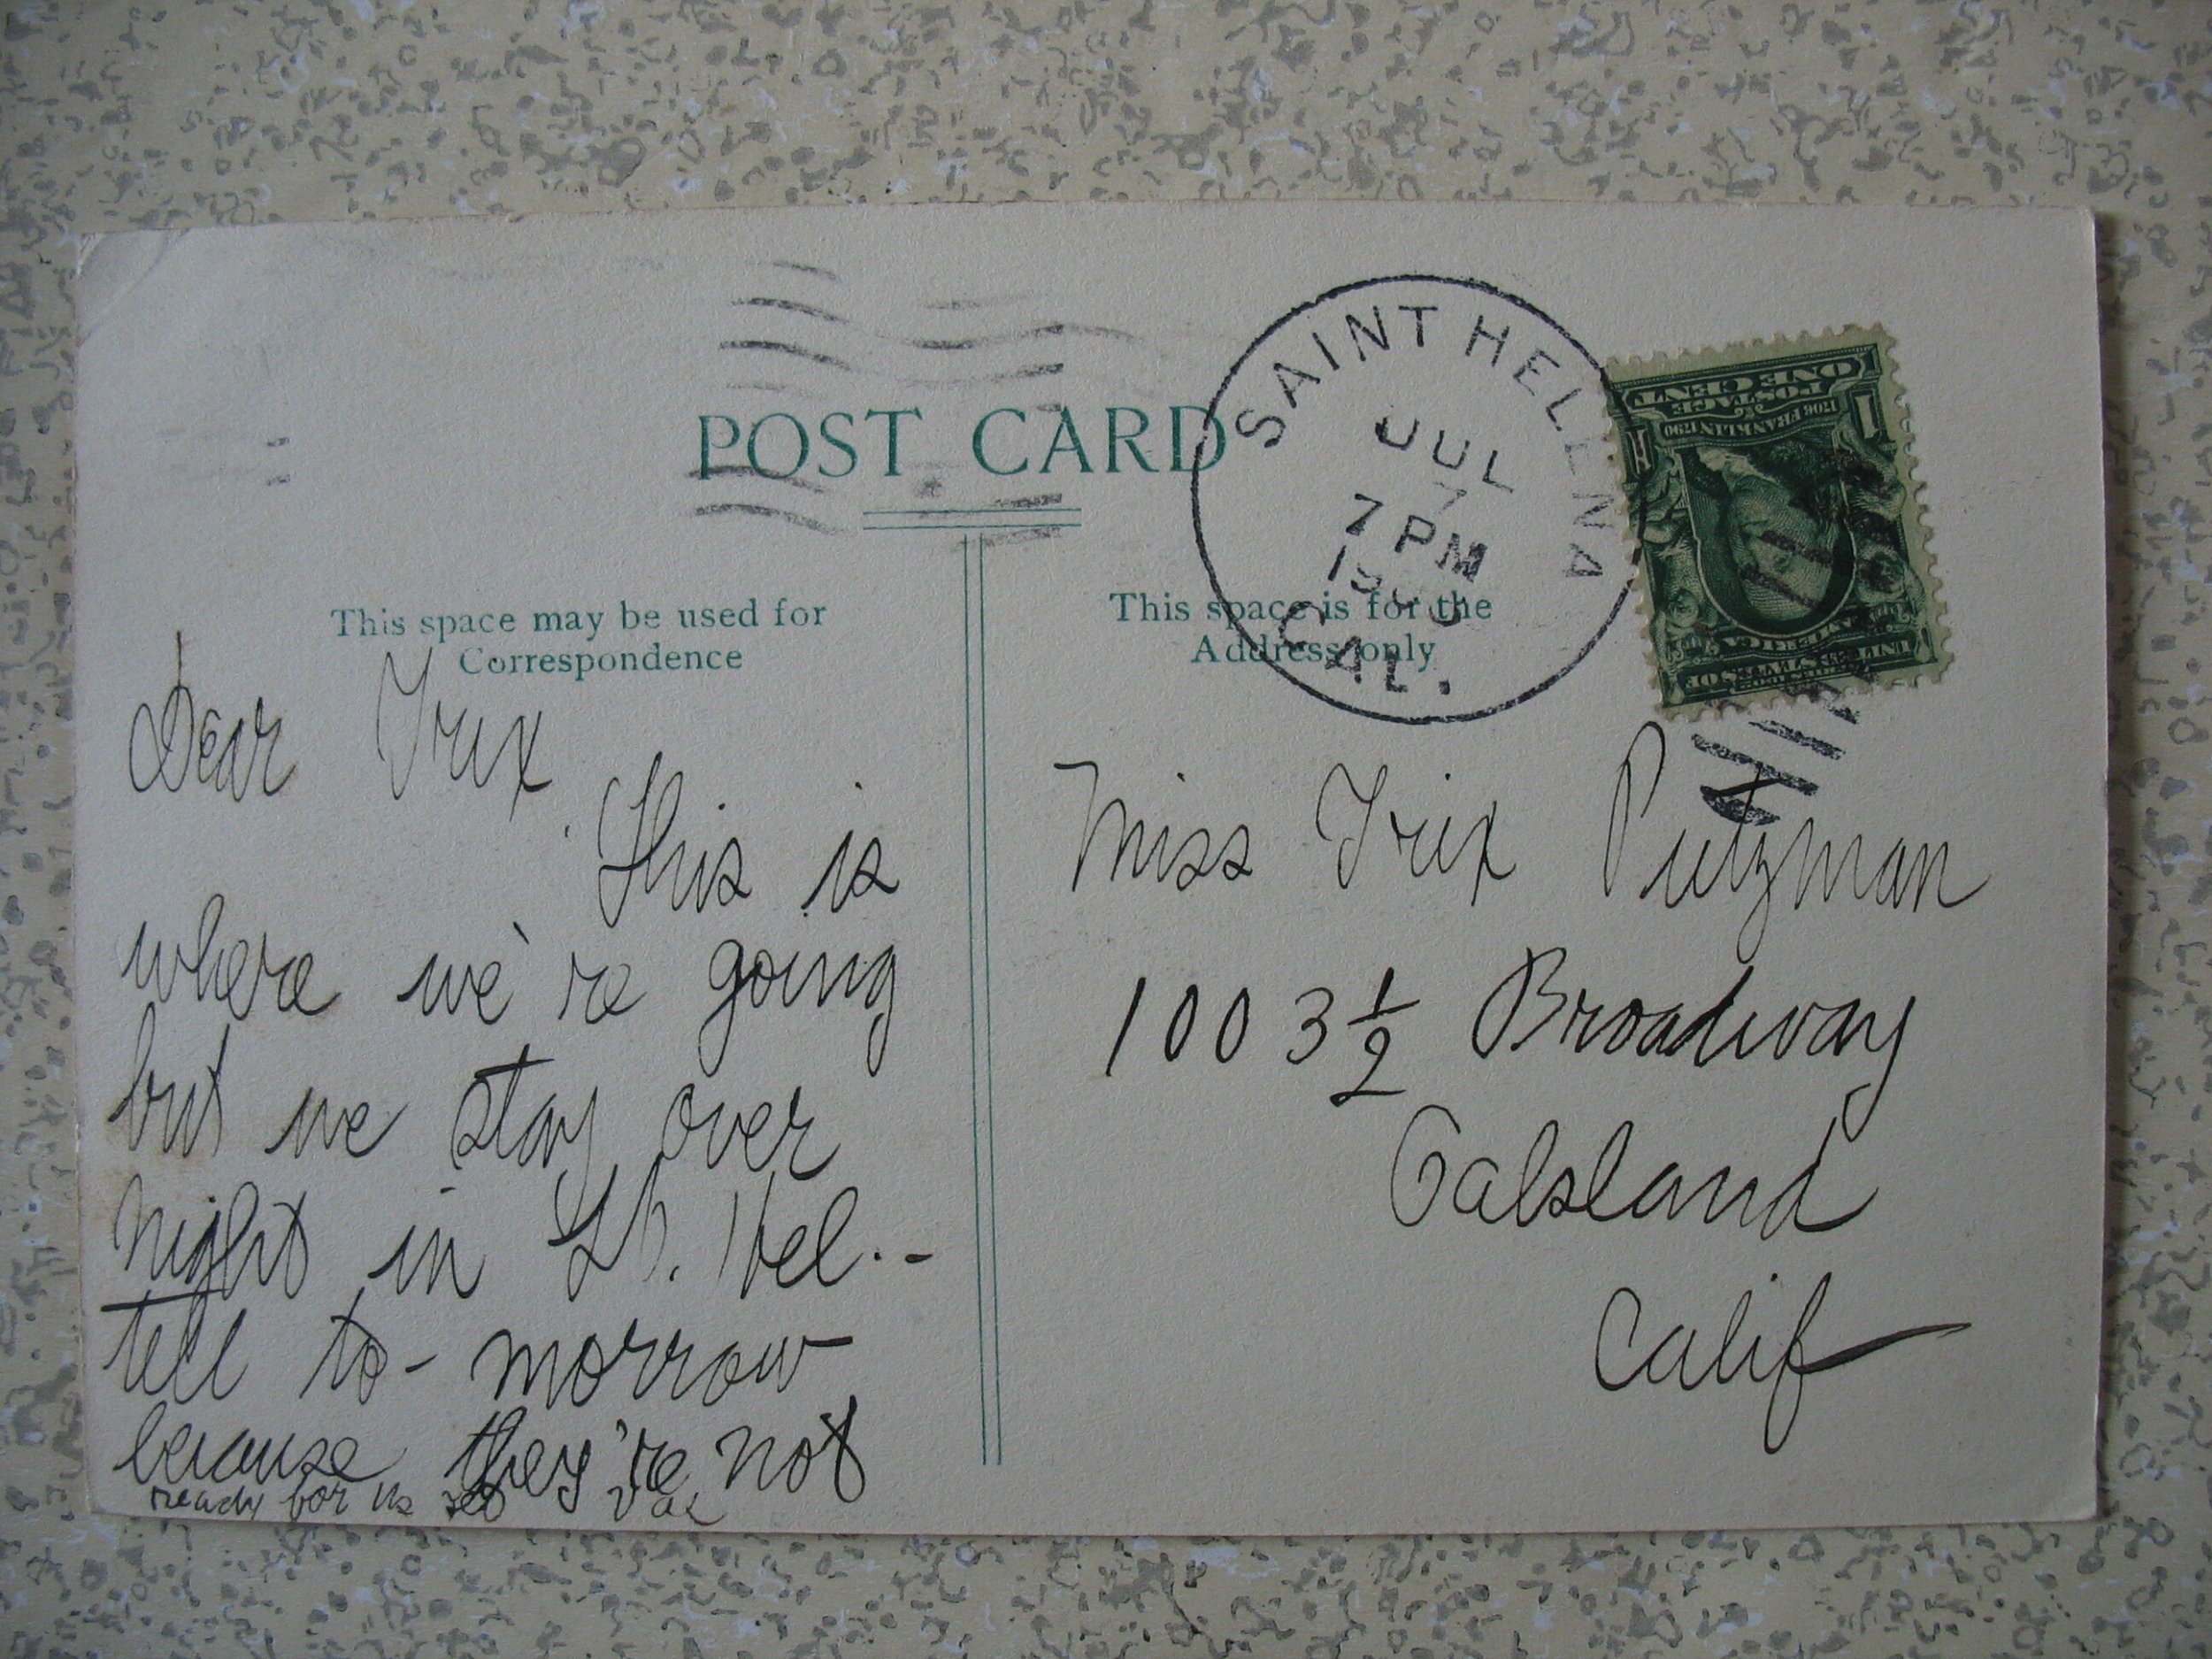 POST CARD
This space may be used for
Correspondence
This space is for the
Address only
SAINT HELENA
JUL
7
7 PM
CAL.
1
ONE CENT
POSTAGE
1706 FRANKLIN 1790
SERIES 1902
UNITED STATES OF
AMERICA
Dear Trix
This is
where we're going
but we stay over
night in St. Hel. -
till to-morrow
because they're not
ready for us
Miss Trix Putzman
1003 1/2 Broadway
Oakland
Calif